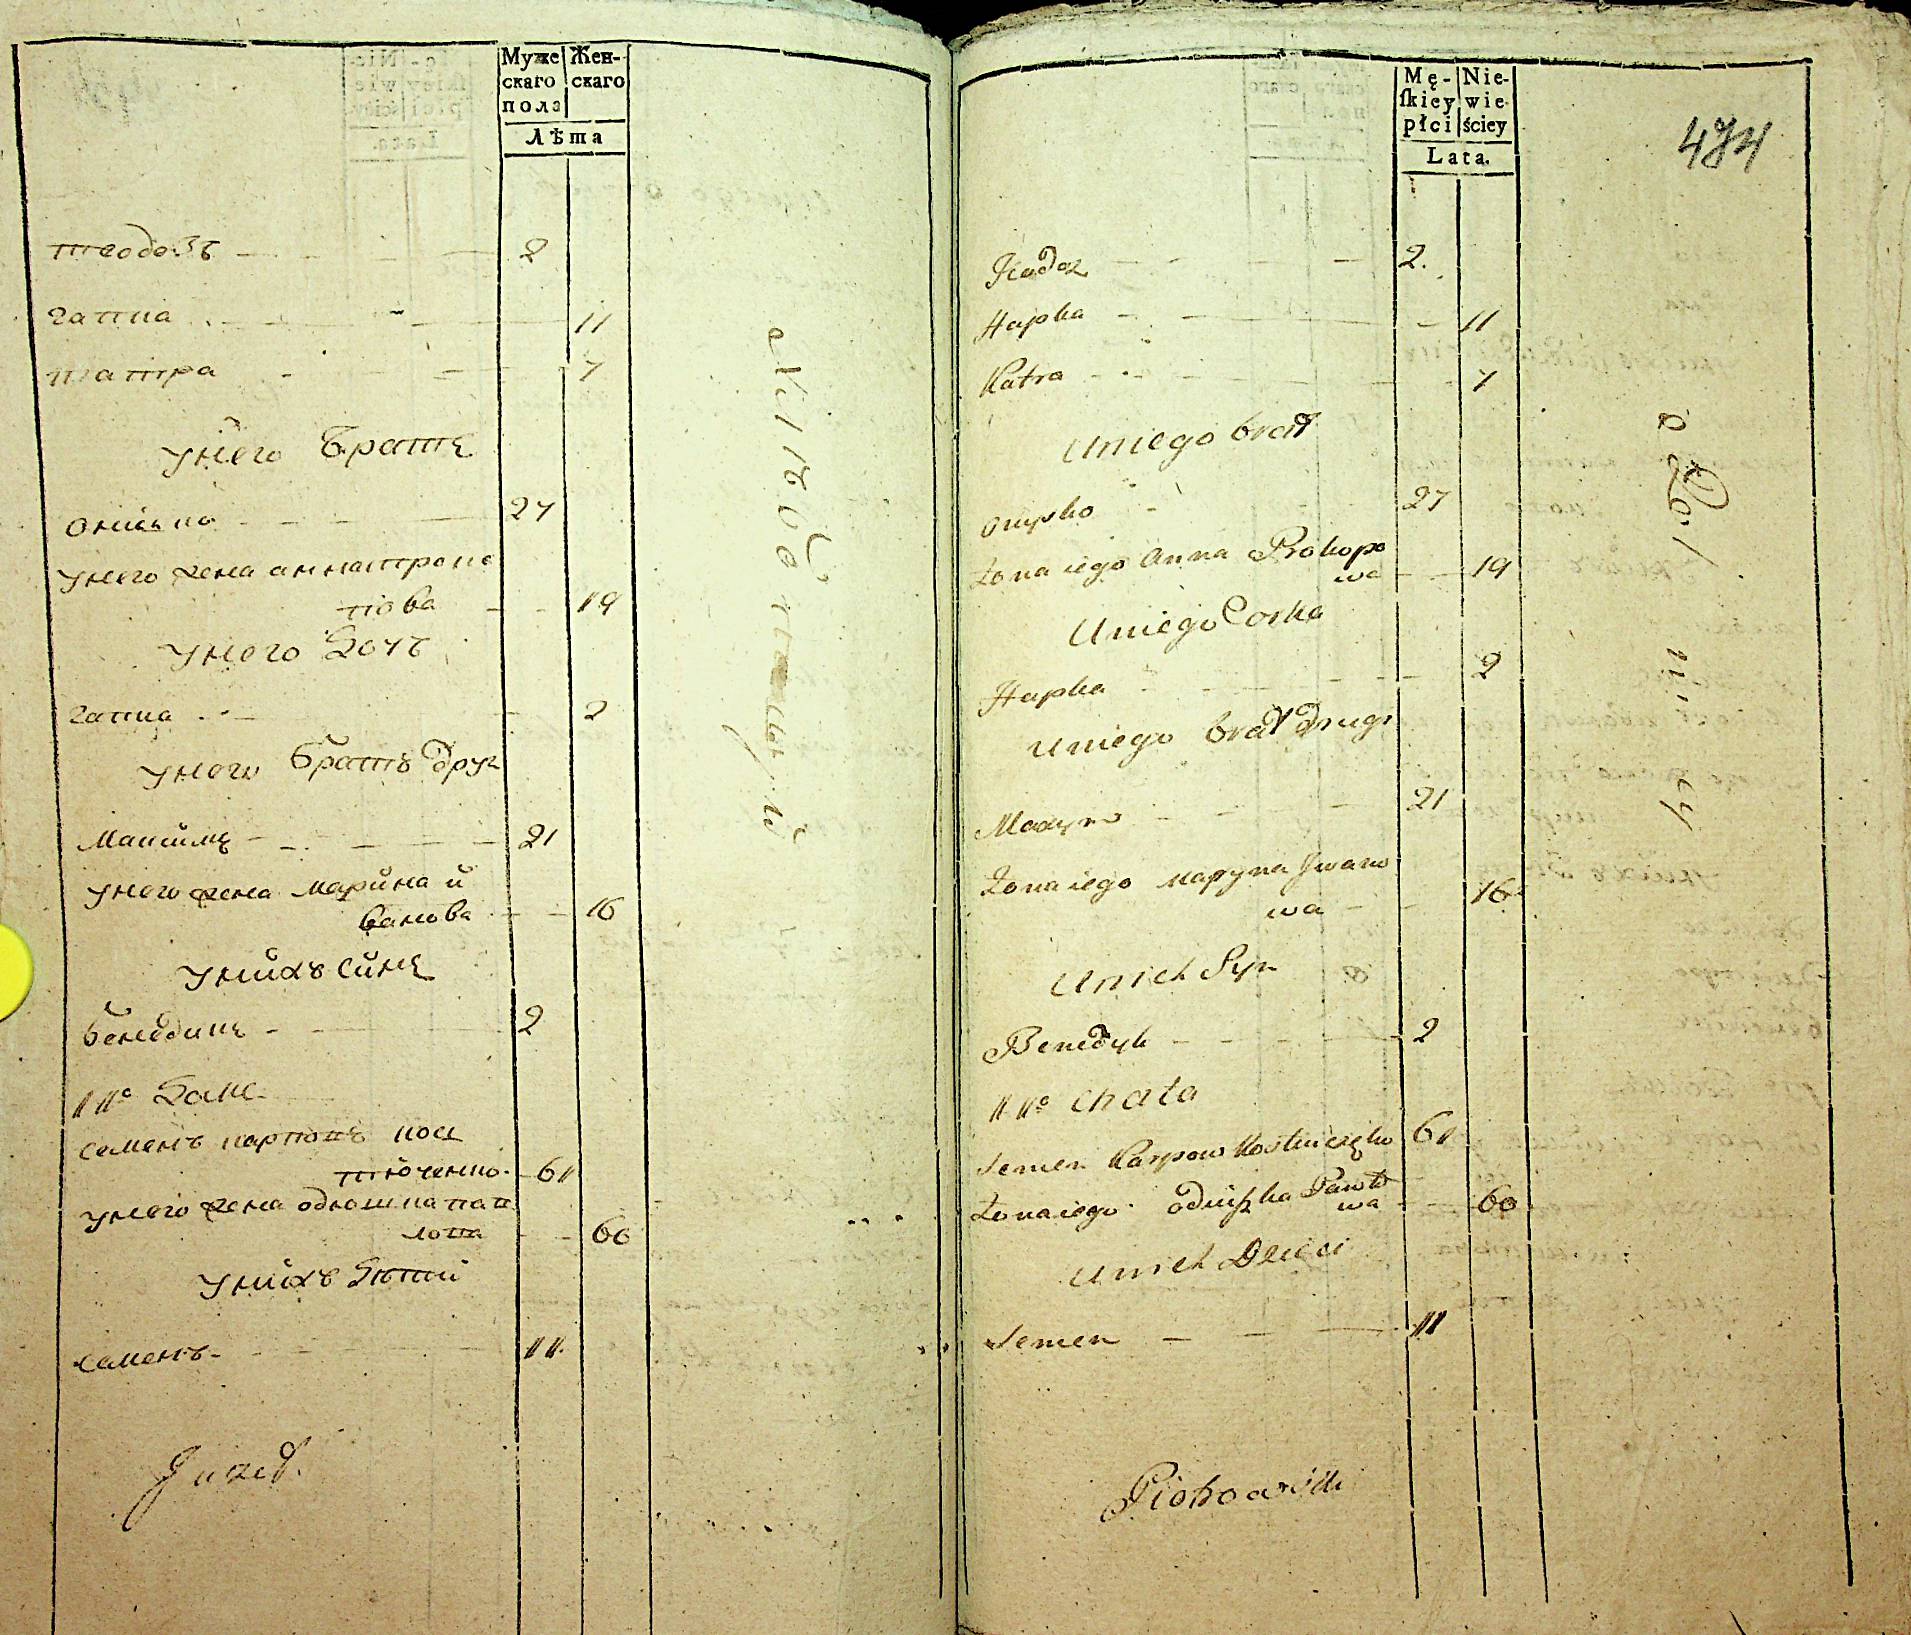 Муже Жен-
скаго скаго
пола
Лѣта
теодоръ 2
гапка 11
катра 7
унего братъ
онишко 27
унего жена анна проко
пова 19
унего дочь
гапка 2
унего братъ друг
максимъ 21
унего жена марина и
ванова 16
унихъ синъ
бенедикъ 2
11º Дане
семенъ карповъ кос
тюченко 61
унего жена одношка пав
лова 60
унихъ дѣти
семенъ 11
Józef
Mę- Nie-
ſkiey wie-
płci ściey
Lata.
474
Hapka 11
Katra 7
Uniego brat
onyszko 27
Żona iego Anna Prokopo
wa 19
Uniego Corka
Hapka 2
Uniego brat Drugi
Maxym 21
Żona iego Maryna Jwano
wa 16
Unich Syn
Benedyk 2
11º Chata
Semen Karpow Kostiuczęko 61
Żona iego odniszka Pawło
wa 60
Unich Dzieci
Semen 11
Piotrowski